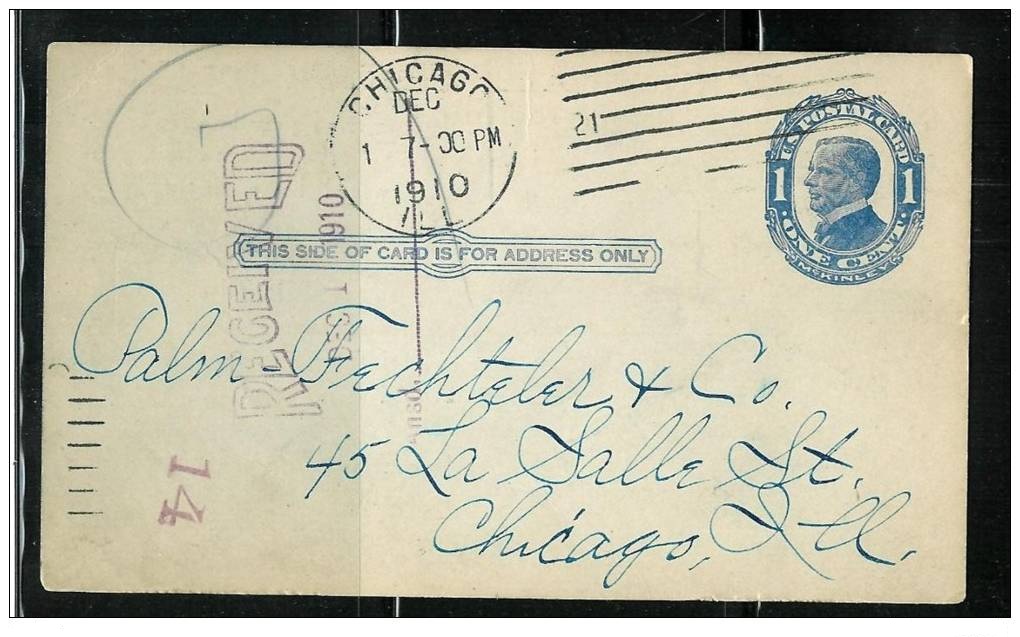 CHICAGO
DEC
1 7-00 PM
1910
ILL
21
U.S. POSTAL CARD
1 1
· ONE CENT ·
McKINLEY
THIS SIDE OF CARD IS FOR ADDRESS ONLY
RECEIVED
DEC 1 1910
14
Palm-Fechteler & Co.
45 La Salle St.
Chicago, Ill.